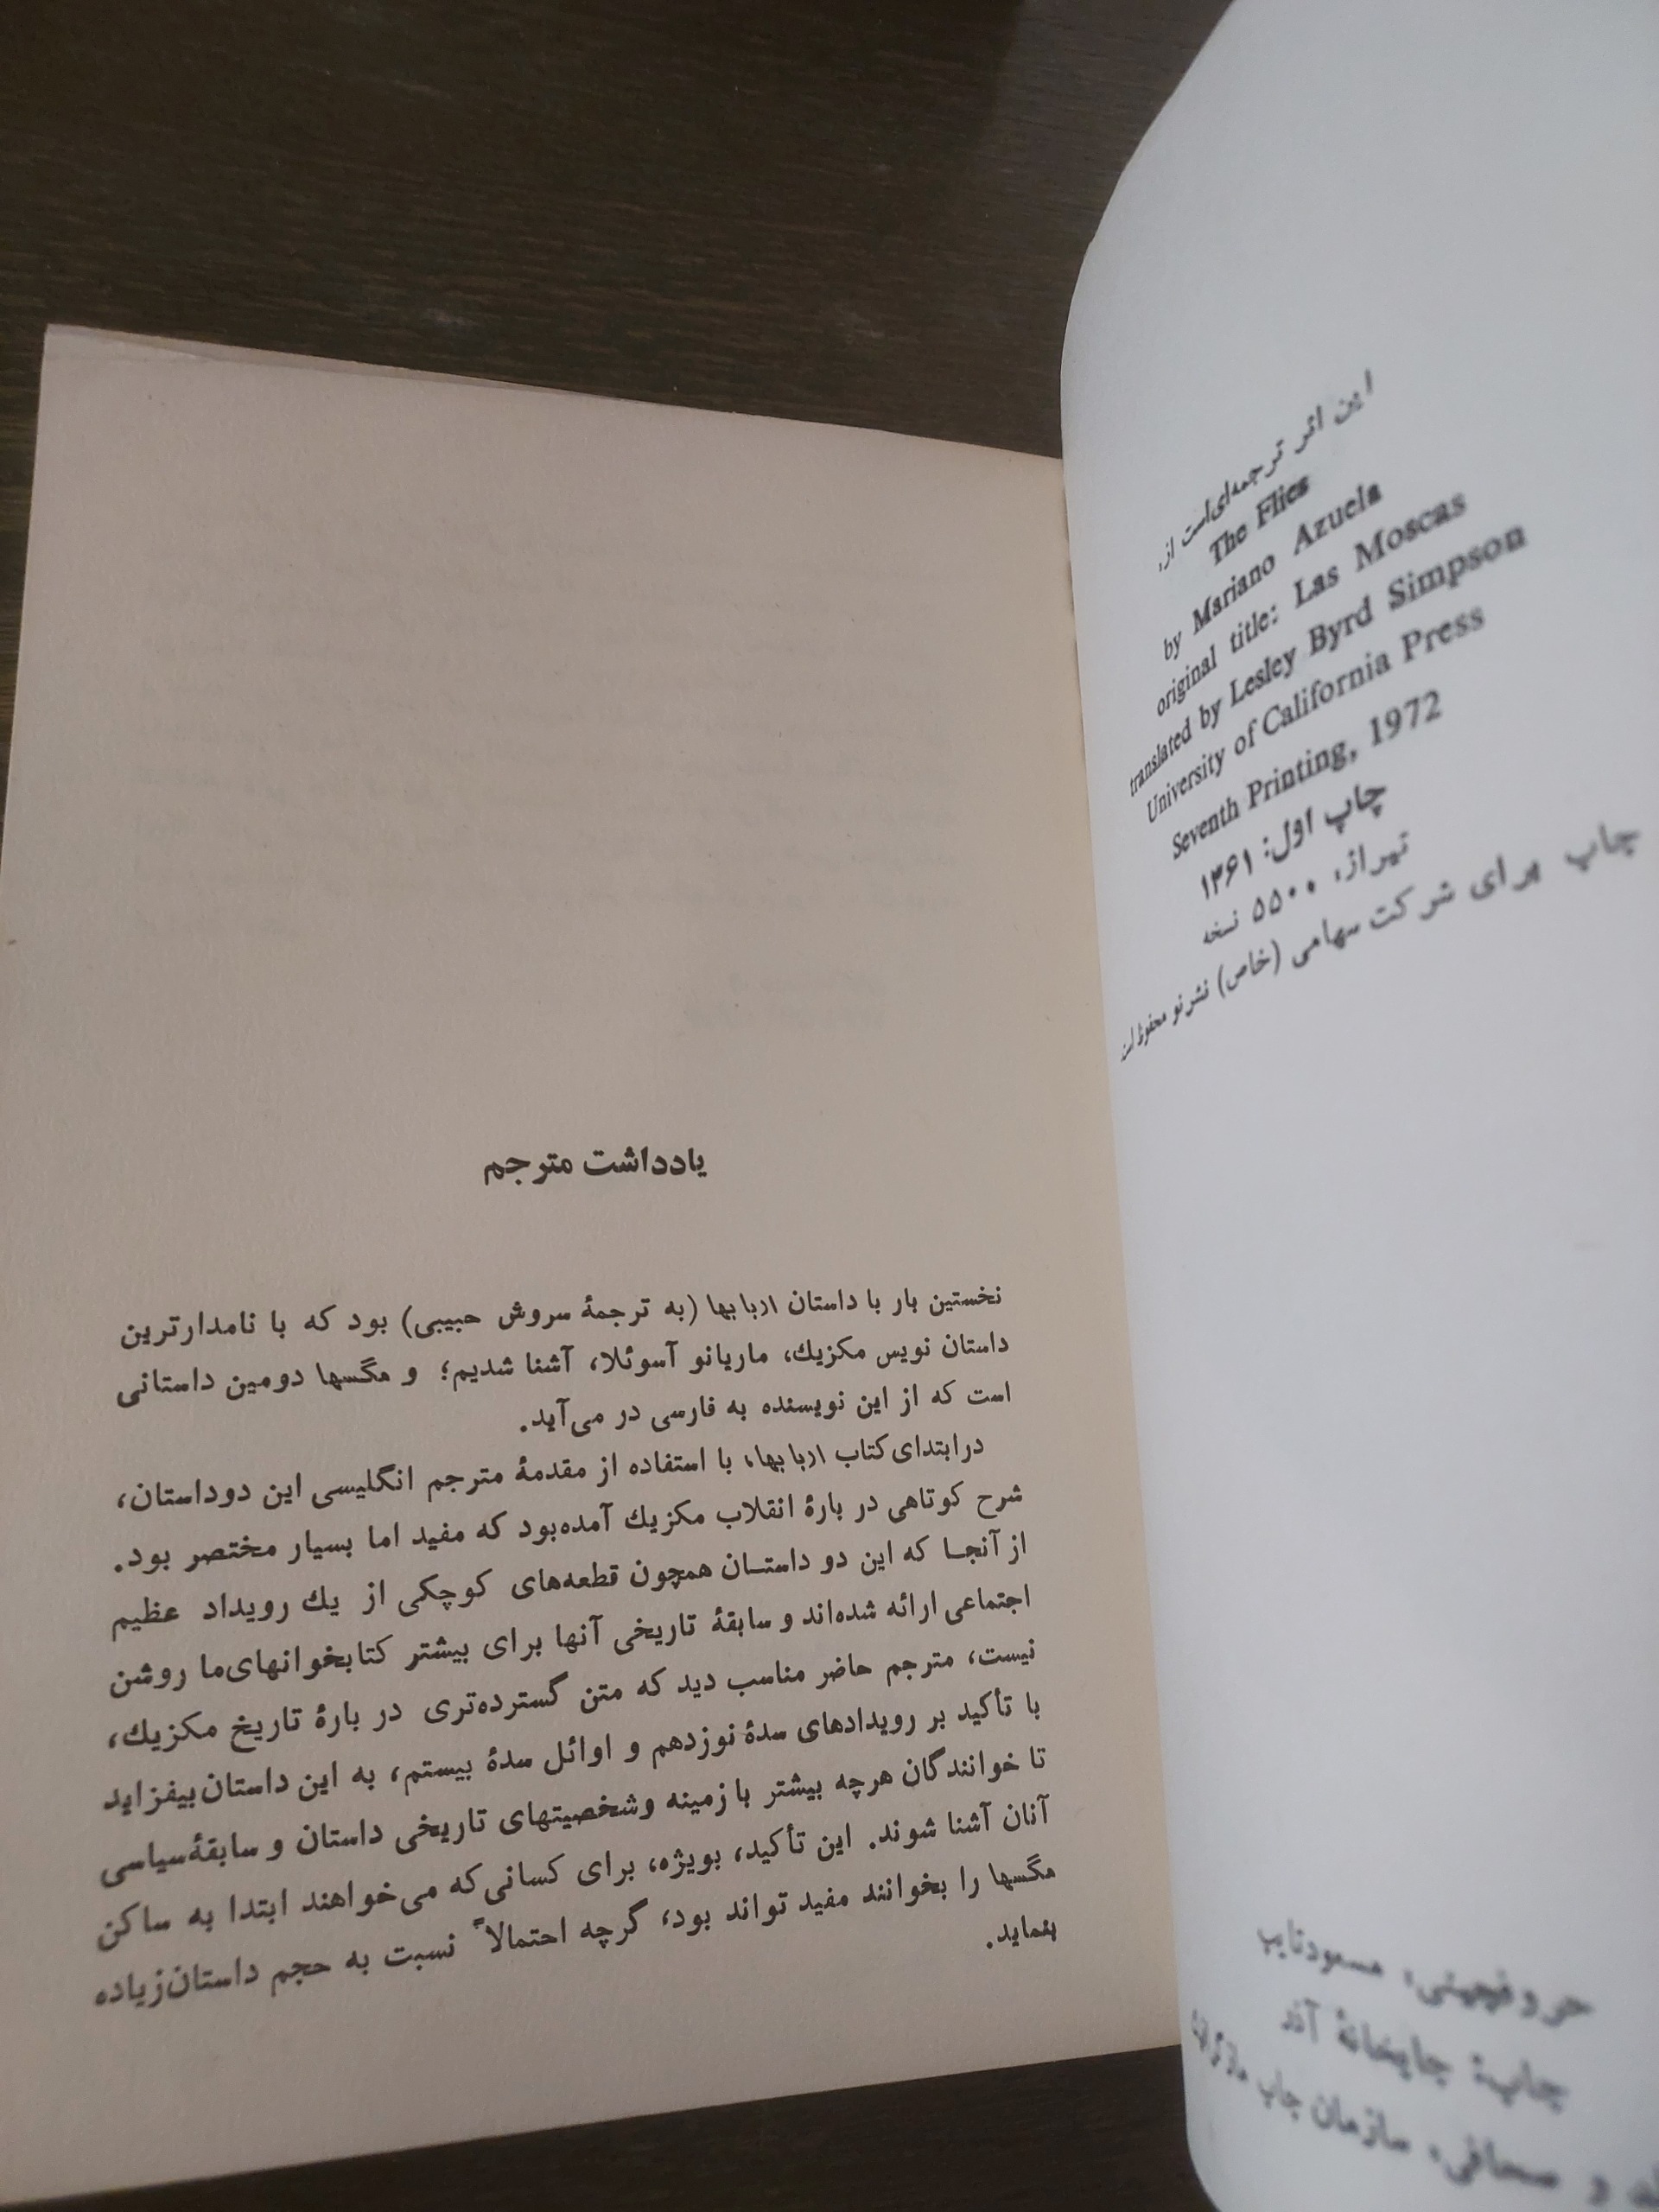 این اثر ترجمه‌ای است از:
The Flies
by Mariano Azuela
original title: Las Moscas
translated by Lesley Byrd Simpson
University of California Press
Seventh Printing, 1972
چاپ اول: ۱۳۶۱
تیراژ: ۵۵۰۰ نسخه
چاپ برای شرکت سهامی (خاص) نشرنو محفوظ است
حروفچینی: مسعودتایپ
چاپ: چاپخانهٔ
و صحافی: سازمان چاپ
یادداشت مترجم
نخستین بار با داستان اربابها (به ترجمهٔ سروش حبیبی) بود که با نامدارترین
داستان نویس مکزیك، ماریانو آسوئلا، آشنا شدیم؛ و مگسها دومین داستانی
است که از این نویسنده به فارسی در می‌آید.
درابتدای کتاب اربابها، با استفاده از مقدمهٔ مترجم انگلیسی این دوداستان،
شرح کوتاهی در بارهٔ انقلاب مکزیك آمده‌بود که مفید اما بسیار مختصر بود.
از آنجا که این دو داستان همچون قطعه‌های کوچکی از یك رویداد عظیم
اجتماعی ارائه شده‌اند و سابقهٔ تاریخی آنها برای بیشتر کتابخوانهای‌ما روشن
نیست، مترجم حاضر مناسب دید که متن گسترده‌تری در بارهٔ تاریخ مکزیك،
با تأکید بر رویدادهای سدهٔ نوزدهم و اوائل سدهٔ بیستم، به این داستان‌بیفزاید
تا خوانندگان هرچه بیشتر با زمینه وشخصیتهای تاریخی داستان و سابقهٔ‌سیاسی
آنان آشنا شوند. این تأکید، بویژه، برای کسانی‌که می‌خواهند ابتدا به ساکن
مگسها را بخوانند مفید تواند بود، گرچه احتمالاً نسبت به حجم داستان‌زیاده
بنماید.